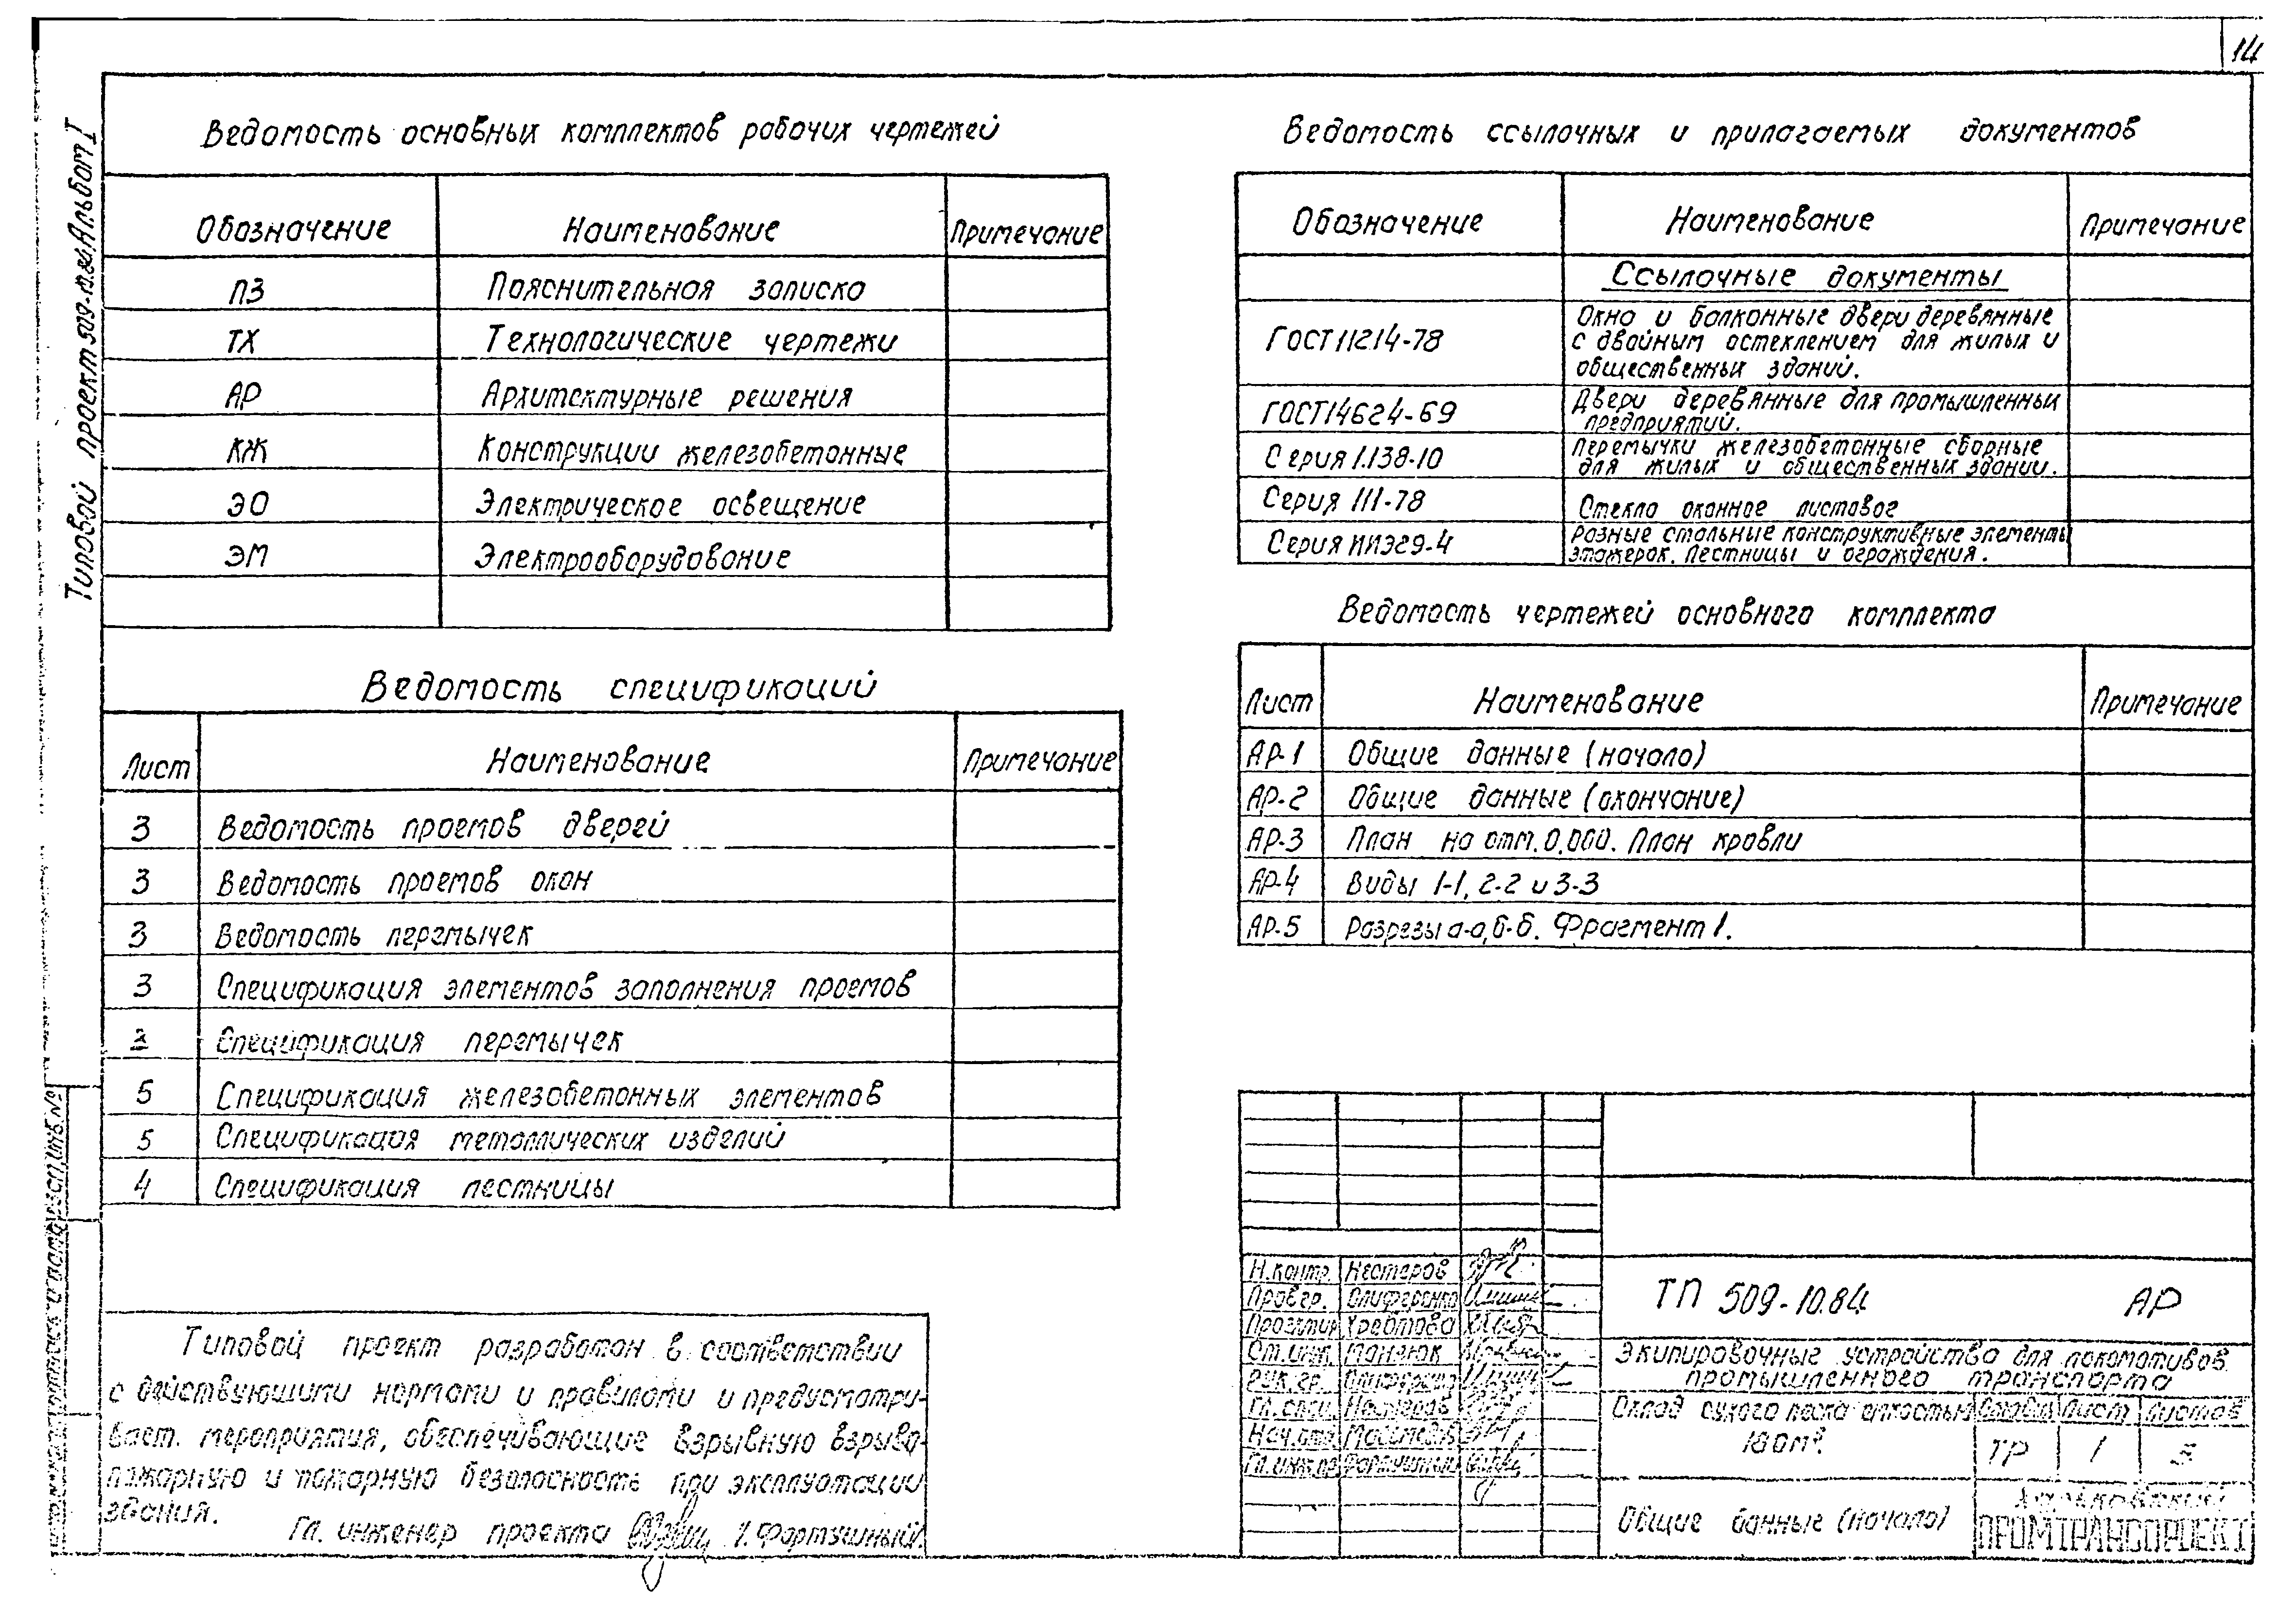 14
Типовой проект 509-10.84 Альбом I
Ведомость основных комплектов рабочих чертежей
Обозначение Наименование Примечание
ПЗ Пояснительная записка
ТХ Технологические чертежи
АР Архитектурные решения
КЖ Конструкции железобетонные
ЭО Электрическое освещение
ЭМ Электрооборудование
Ведомость спецификаций
Лист Наименование Примечание
3 Ведомость проемов дверей
3 Ведомость проемов окон
3 Ведомость перемычек
3 Спецификация элементов заполнения проемов
Спецификация перемычек
5 Спецификация железобетонных элементов
5 Спецификация металлических изделий
4 Спецификация лестницы
Типовой проект разработан в соответствии
с действующими нормами и правилами и предусматри-
вает мероприятия, обеспечивающие взрывную взрыво-
пожарную и пожарную безопасность при эксплуатации
здания.
Гл. инженер проекта Фортушный
Ведомость ссылочных и прилагаемых документов
Обозначение Наименование Примечание
Ссылочные документы
ГОСТ 11214-78 Окна и балконные двери деревянные
с двойным остеклением для жилых и
общественных зданий.
ГОСТ 14624-69 Двери деревянные для промышленных
предприятий.
Серия 1.138-10 Перемычки железобетонные сборные
для жилых и общественных здании.
Серия 111-78 Стекло оконное листовое
Серия ИИЭ29-4 Разные стальные конструктивные элементы
этажерок. Лестницы и ограждения.
Ведомость чертежей основного комплекта
Лист Наименование Примечание
АР-1 Общие данные (начало)
АР-2 Общие данные (окончание)
АР-3 План на отм. 0.000. План кровли
АР-4 Виды 1-1, 2-2 и 3-3
АР-5 Разрезы а-а, б-б. Фрагмент 1.
Н.контр. Нестеров
Провер. Олиференко
Ст.инж. Манзюк
Рук.гр.
Гл.спец. Нестеров
Нач.отд.
Гл.инж.пр. Фортушный
ТП 509-10.84 АР
Экипировочные устройства для локомотивов
промышленного транспорта
Склад сухого песка емкостью
Стадия Лист Листов
ТР 1 5
Общие данные (начало)
Харьковский
ПРОМТРАНСПРОЕКТ